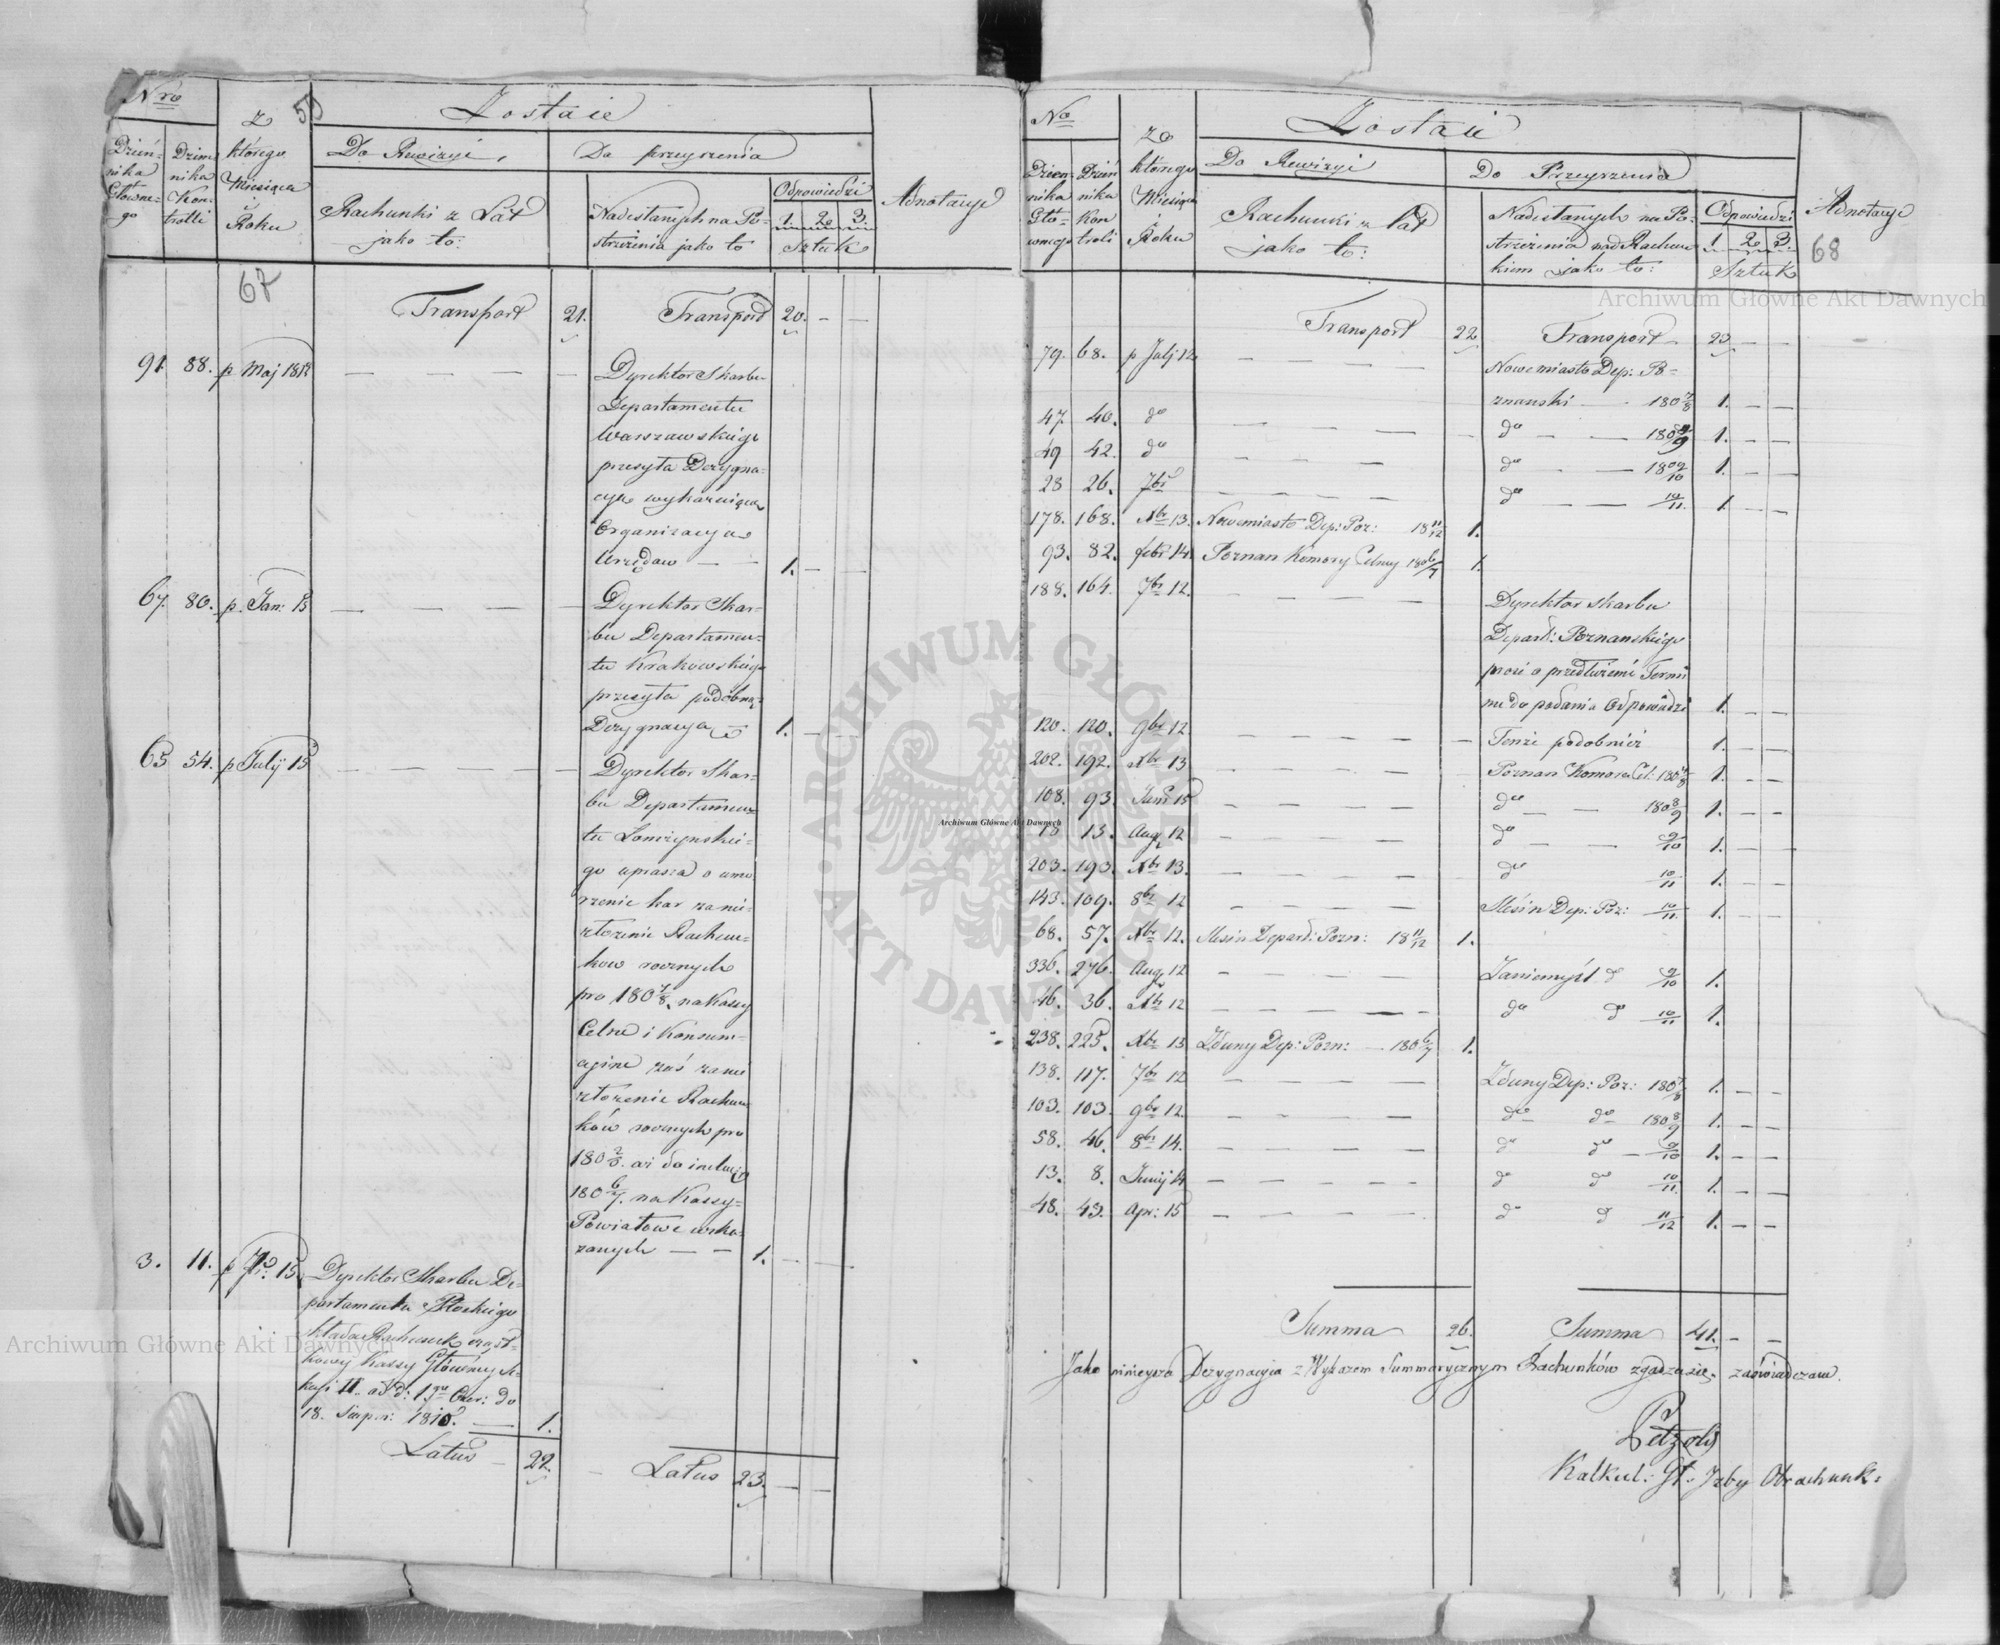 Nro
55
z
którego
Miesiąca
i
Roku
Zostaie
Dzien-
nika
Główne-
go
Dzien-
nika
Kon-
trolli
Do Rewizyi,
Do przeyrzenia
Rachunki z Lat
jako to:
Nadesłanych na Po-
strzeżenia jako to
Odpowiedzi
1. 2. 3.
Sztuk
Adnotacye
67
Transport 21. Transport 20. — —
91. 88. p Maj 1812 — — — — Dyrektor Skarbu
Departamentu
Warszawskiego
przesyła Dezygna-
cye wykazuiącą
Organizacyą
Urzędow — — 1. — —
67. 80. p. Jan: 15 — — — — Dyrektor Skar-
bu Departamen-
tu Krakowskiego
przesyła podobną
Dezygnacyą — 1. —
65 54. p July 15 — — — — Dyrektor Skar-
bu Departamen-
tu Łomżynskie-
go uprasza o umo-
rzenie kar za nie-
złożenie Rachun-
kow rocznych
pro 180 7/8. na Kassy
Celne i Konsum-
cyine zaś za nie
złożenie Rachun-
ków rocznych pro
180
180 6/7. na Kassy
Powiatowe wska-
zanych — — 1. — —
3. 11. 15. Dyrektor Skarbu De-
partamentu Płockiego
składa Rachunek
kowy Kassy Główney
18. Sierpn: 1815. — 1.
Latus — 22. — Latus 23. — —
No
Dzien-
nika
Głó-
wnego
Dzien
nika
Kon
troli
ze
którego
Miesiąca
i Roku
Zostaie
Do Rewizyi
Do Przeyrzenia
Rachunki z Lat
jako to:
Nadesłanych na Po-
strzeżenia nad Rachun
kiem jako to:
Odpowiedzi
1. 2. 3.
Sztuk
Adnotacye
68
Transport 22. Transport 23. — —
79. 68. p July 12 — — — Nowemiasto Dep: Po-
znanski — 180 7/8 1. — —
47. 40. do — — — — do — — 180 8/9 1. — —
49 42. do — — — do — — 18 09/10 1. — —
28 26. 7br — — — — do — — 10/11. 1. — —
178. 168. Xbr 13. Nowemiasto Dep: Poz: 18 11/12 1.
93. 82. febr 14. Poznan Komory Celney 180 6/7 1.
188. 164. 7br 12. — — — — Dyrektor Skarbu
Depart: Poznanskiego
prosi o przedłużenie Termi
nu do podania Odpowiedzi 1. — —
120. 120. 9br 12 — — — — Tenże podobnież 1. — —
202. 192. Xbr 13 — — — — Poznan Komora Cel: 180 7/8 1. — —
108. 93. Jan 15 — — — — do — 180 8/9 1. — —
18 13. Aug 12 — — — — do — — 9/10 1. — —
203. 193. Xbr 13. — — — — do 10/11 1. — —
143. 109. 8br 12 — — — — Slesin Dep: Poz: 10/11. 1. — —
68. 57. Xbr 12. Slesin Depart: Pozn: 18 11/12 1.
336. 276. Aug 12 — — — — Zaniemyśl do 9/10 1.
46. 36. Xbr 12 — — — — do do 10/11 1.
238. 225. Xbr 13 Zduny Dep: Pozn: — 180 6/7 1.
138. 117. 7br 12 — — — — Zduny Dep: Poz: 180 7/8 1. — —
103. 103. 9br 12. — — — — do do 180 8/9 1. — —
58. 46. 8br 14. — — — — do do — 9/10 1. — —
13. 8. Junij 14 — — — — do do 10/11. 1. — —
48. 43. Apr: 15 — — — — do do 11/12 1. — —
Summa 26. Summa 41. — —
Jako ninieysza Dezygnacyia z Wykazem Summarycznym Rachunków zgadza się. zaświadczam.
Petzold
Kalkul: Gł: Izby Obrachunk:
Archiwum Główne Akt Dawnych
ARCHIWUM GŁÓWNE AKT DAWNYCH
Archiwum Główne Akt Dawnych
Archiwum Główne Akt Dawnych